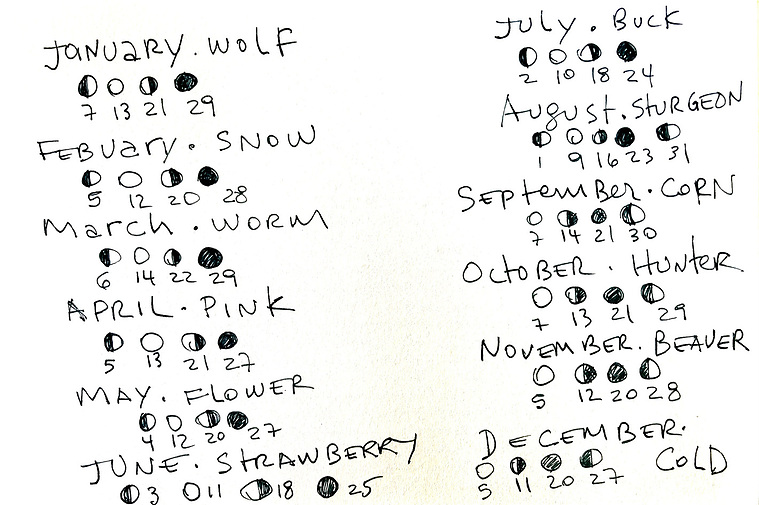 January. Wolf
7 13 21 29
Febuary. Snow
5 12 20 28
March. Worm
6 14 22 29
April. Pink
5 13 21 27
May. Flower
4 12 20 27
June. Strawberry
3 11 18 25
July. Buck
2 10 18 24
August. Sturgeon
1 9 16 23 31
September. Corn
7 14 21 30
October. Hunter
7 13 21 29
November. Beaver
5 12 20 28
December. Cold
5 11 20 27